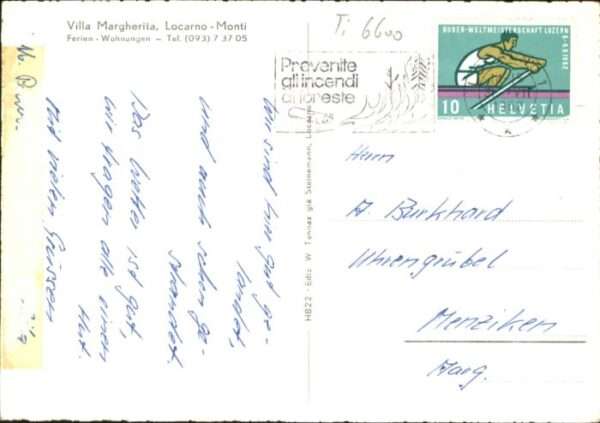 Villa Margherita, Locarno-Monti
Ferien-Wohnungen — Tel. (093) 7 37 05
Ti 6600
Prevenite
gli incendi
di foreste
RUDER-WELTMEISTERSCHAFT LUZERN
6-9.9.1962
10 HELVETIA
wir sind hier gut ge-
landet,
und auch schon ge-
standet.
Das Wetter ist gut,
wir tragen alle einen
Hut.
Mit vielen Grüssen
HB22 - Ediz. W. Tannaz già Steinemann, Locarno
Herrn
A. Burkhard
Uhrengrubel
Menziken
Aarg.